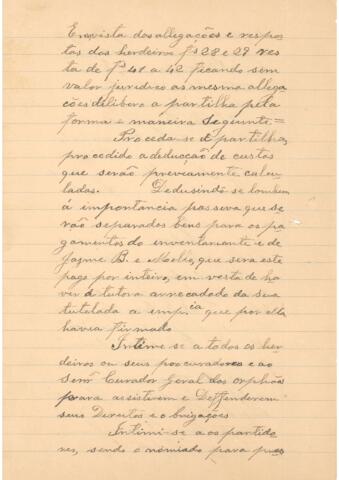 Em vista das allegações e respos
tas dos herdeiros fs 28 e 29 res
ta de fs 41 a 42 ficando sem
valor juridico as mesma allega
ções delibero a partilha pela
forma e maneira Seguinte =
Proceda-se á partilha,
procedido a deducção de custas
que serão previamente calcu
ladas. Dedusindo-se tambem
á importancia passiva que se
rão separados bens para os pa
gamentos do inventariante e de
Jayme B. e que sera este
pago por inteiro, em vista de ha
ver a tutora arrecadado da sua
tutelada a impcia que por ella
havia firmado
Intime-se a todos os her
deiros ou seus procuradores e ao
Senr Curador Geral dos Orphãos
para assistirem e Deffenderem
seus Direitos e obrigações
Intimi-se a os partido
res, sendo o nomiado para